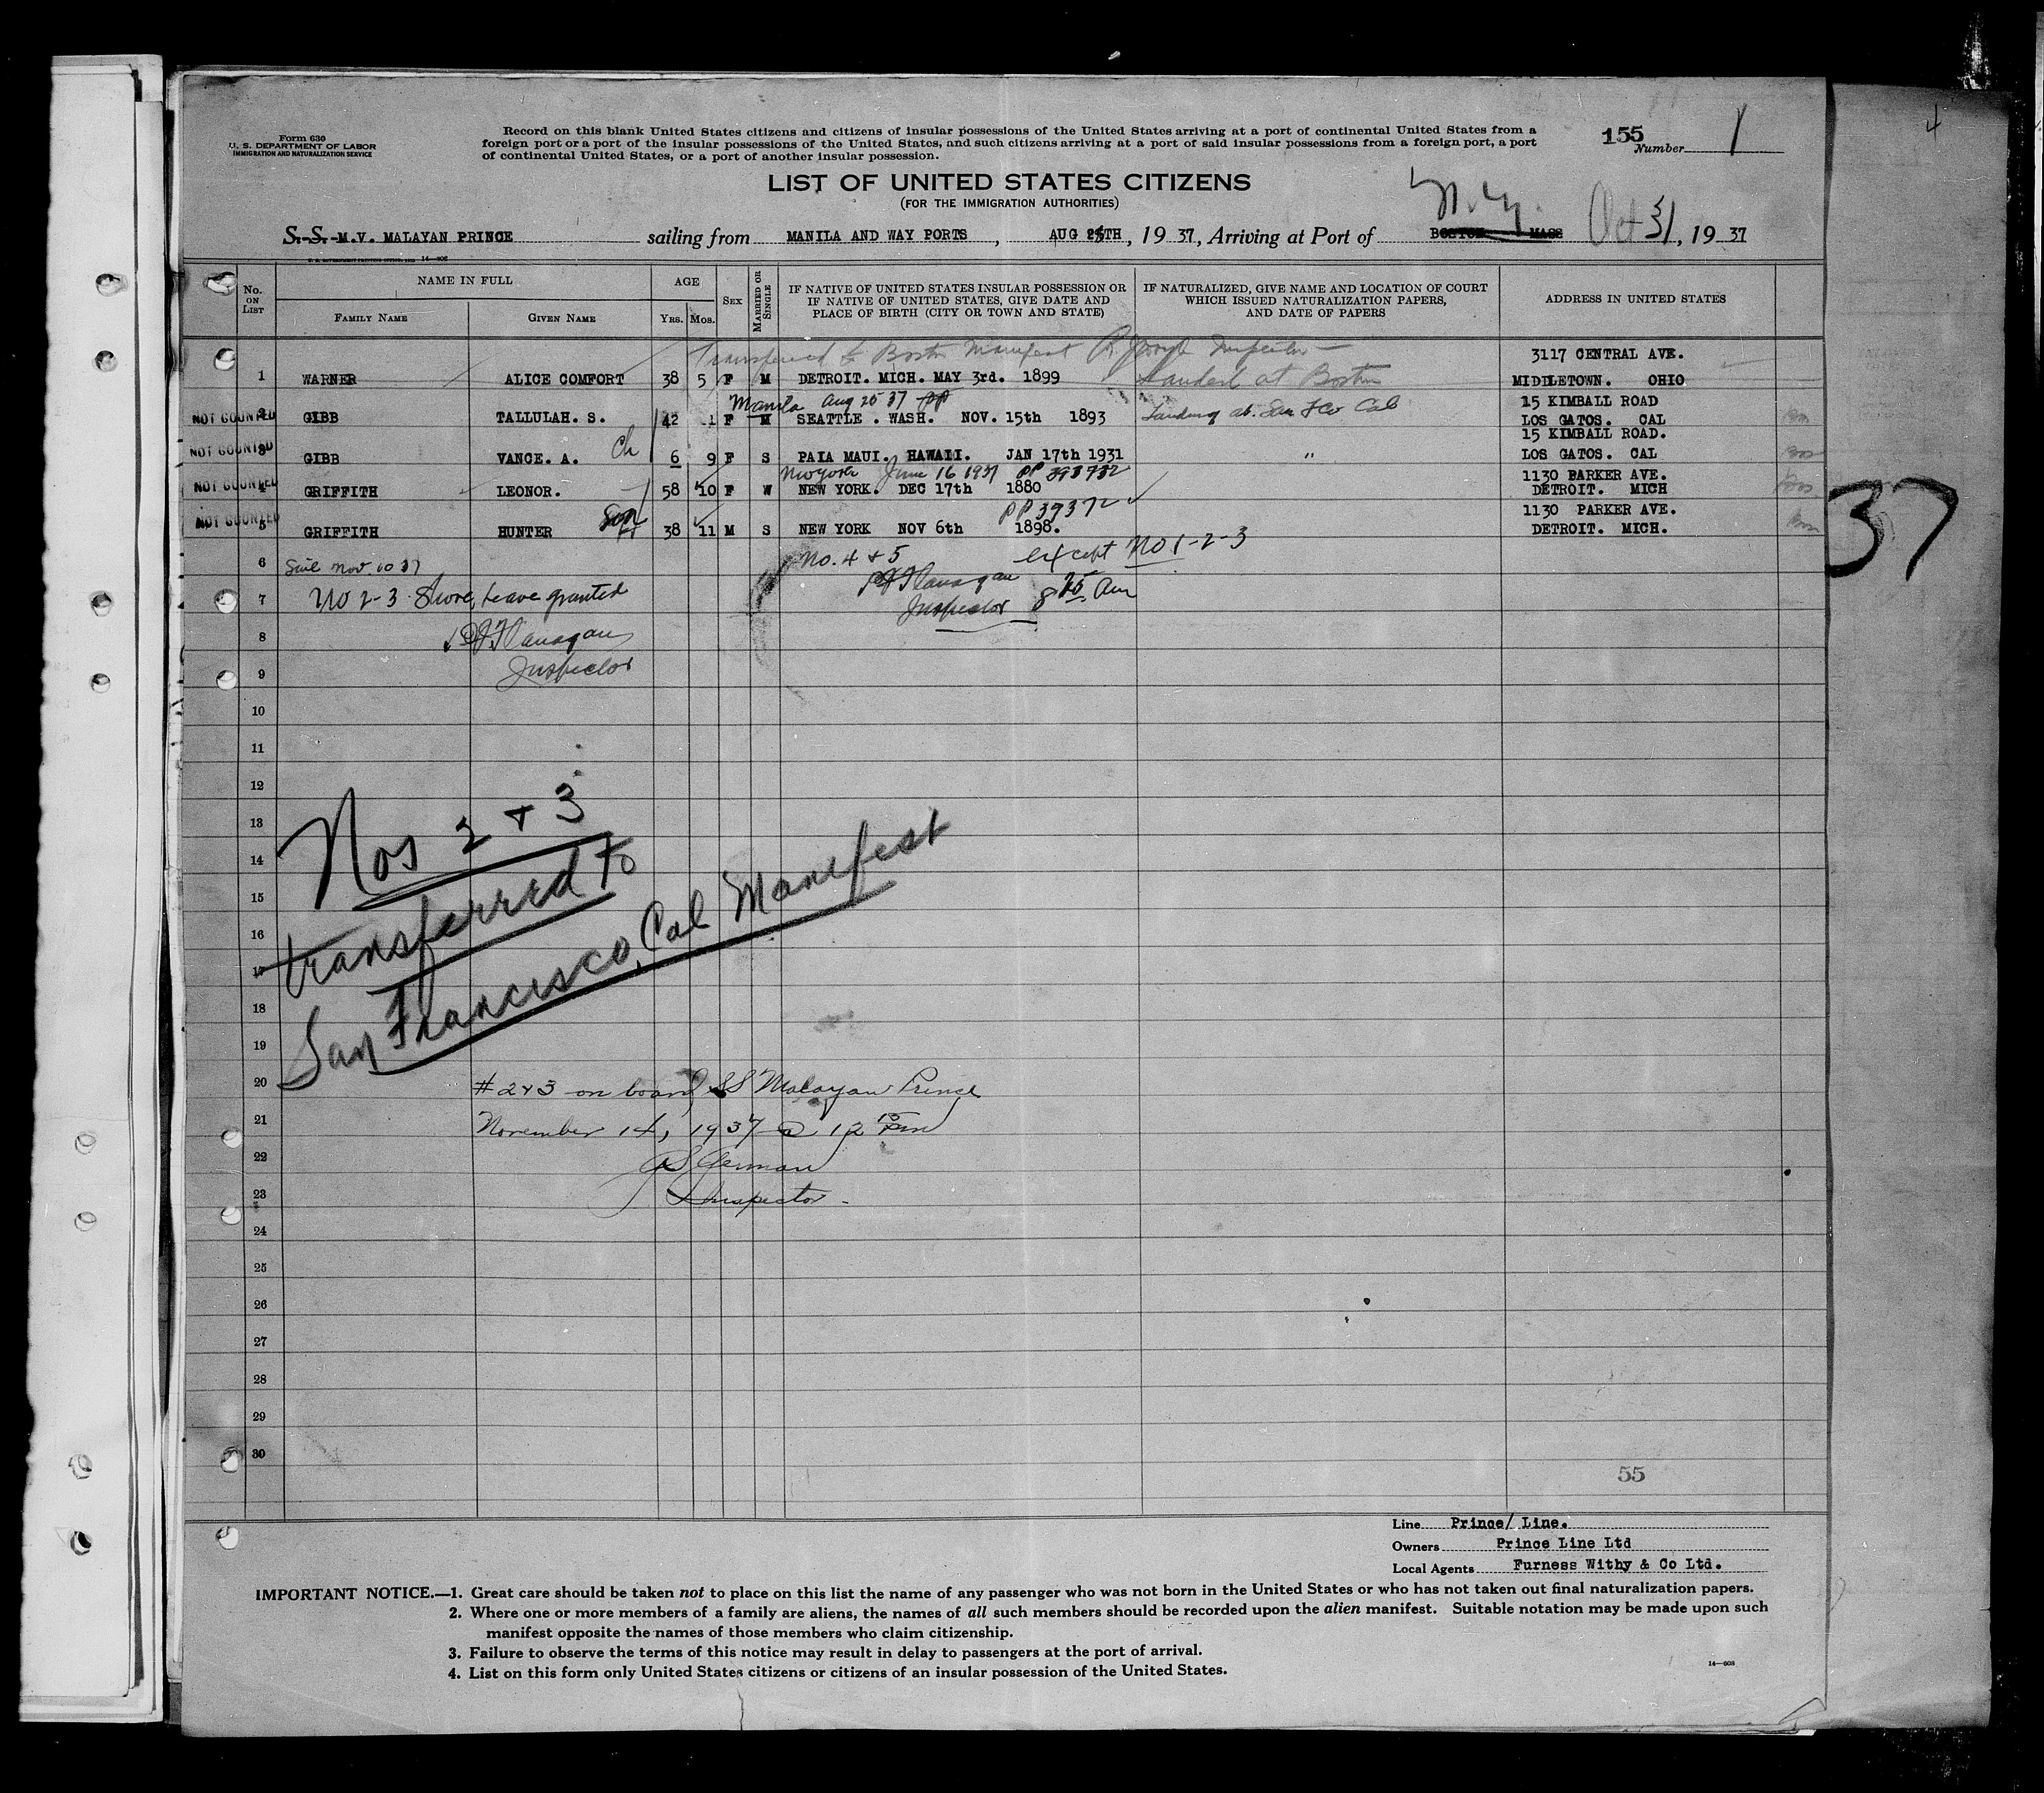 Form 630
U. S. DEPARTMENT OF LABOR
IMMIGRATION AND NATURALIZATION SERVICE
Record on this blank United States citizens and citizens of insular possessions of the United States arriving at a port of continental United States from a
foreign port or a port of the insular possessions of the United States, and such citizens arriving at a port of said insular possessions from a foreign port, a port
of continental United States, or a port of another insular possession.
155 Number 1
4
LIST OF UNITED STATES CITIZENS
(FOR THE IMMIGRATION AUTHORITIES)
N.Y.
S. S. M.V. MALAYAN PRINCE sailing from MANILA AND WAY PORTS, AUG 25TH, 19 37, Arriving at Port of BOSTON MASS Oct 31, 19 37
No. ON LIST
NAME IN FULL
FAMILY NAME
GIVEN NAME
AGE
YRS. MOS.
SEX
MARRIED OR SINGLE
IF NATIVE OF UNITED STATES INSULAR POSSESSION OR
IF NATIVE OF UNITED STATES, GIVE DATE AND
PLACE OF BIRTH (CITY OR TOWN AND STATE)
IF NATURALIZED, GIVE NAME AND LOCATION OF COURT
WHICH ISSUED NATURALIZATION PAPERS,
AND DATE OF PAPERS
ADDRESS IN UNITED STATES
Transferred to Boston Manifest Inspector
3117 CENTRAL AVE.
1 WARNER ALICE COMFORT 38 5 F M DETROIT. MICH. MAY 3rd. 1899 Landed at Boston MIDDLETOWN. OHIO
Manila Aug 25 37 PP
15 KIMBALL ROAD
NOT COUNTED 2 GIBB TALLULAH. S. 42 1 F M SEATTLE . WASH. NOV. 15th 1893 Landing at San Fco Cal LOS GATOS. CAL
15 KIMBALL ROAD.
NOT COUNTED 3 GIBB VANCE. A. Ch 6 9 F S PAIA MAUI. HAWAII. JAN 17th 1931 " LOS GATOS. CAL
New York June 16 1937 PP 393732
1130 PARKER AVE.
NOT COUNTED 4 GRIFFITH LEONOR. 58 10 F W NEW YORK. DEC 17th 1880 DETROIT. MICH
PP 39372
1130 PARKER AVE.
NOT COUNTED 5 GRIFFITH HUNTER Son 38 11 M S NEW YORK NOV 6th 1898. DETROIT. MICH.
37
6 Nov. 10 37 No. 4 & 5 except No 1-2-3
7 No 2-3 Shore Leave granted Flanagan
Inspector 8 25 Am
8 Flanagan
9 Inspector
10
11
12
13
14
15
16
17
18
19
Nos 2 & 3
transferred to
San Francisco, Cal Manifest
20 #2&3 on board SS Malayan Prince
21 November 14, 1937 @ 12 15 Pm
22 German
23 Inspector
24
25
26
27
28
29
30
55
Line Prince/ Line.
Owners Prince Line Ltd
Local Agents Furness Withy & Co Ltd.
IMPORTANT NOTICE.—1. Great care should be taken not to place on this list the name of any passenger who was not born in the United States or who has not taken out final naturalization papers.
2. Where one or more members of a family are aliens, the names of all such members should be recorded upon the alien manifest. Suitable notation may be made upon such
manifest opposite the names of those members who claim citizenship.
3. Failure to observe the terms of this notice may result in delay to passengers at the port of arrival.
4. List on this form only United States citizens or citizens of an insular possession of the United States.
14—608